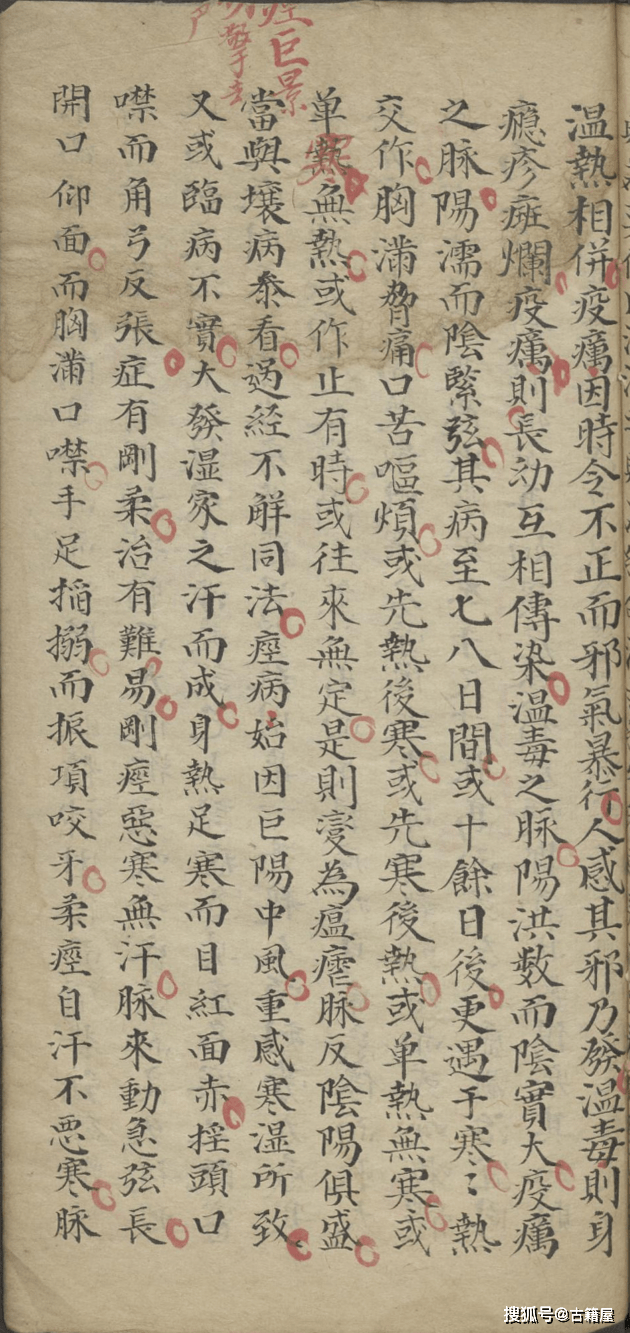 温熱相併疫癘因時令不正而邪氣暴行人感其邪乃發温毒則身
癮疹斑爛疫癘則長幼互相傳染温毒之脉陽洪数而陰實大疫癘
之脉陽濡而陰緊弦其病至七八日間或十餘日後更遇于寒〻熱
交作胸滿脅痛口苦嘔煩或先熱後寒或先寒後熱或单熱無寒或
单熱無熱或作止有時或往來無定是則變為瘟瘧脉反陰陽俱盛
當與壞病叅看過经不解同法痙病始因巨陽中風重感寒湿所致
又或臨病不實大發湿家之汗而成身熱足寒而目紅面赤摇頭口
噤而角弓反張症有剛柔治有難易剛痙惡寒無汗脉來動急弦長
開口仰面而胸滿口噤手足搐搦而振項咬牙柔痙自汗不悪寒脉
巨景
搜狐号@古籍屋